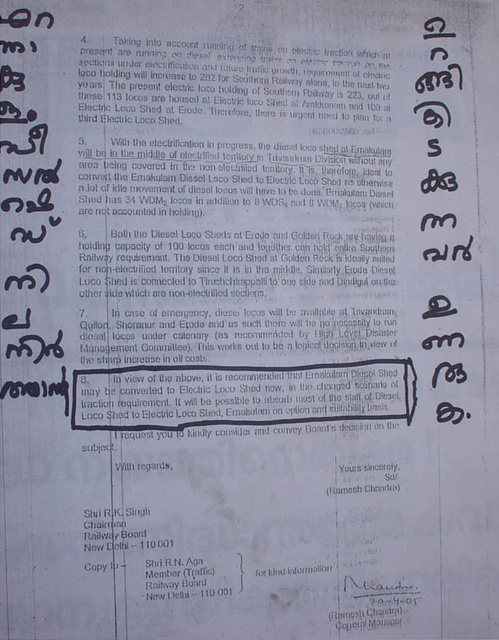 2
4. Taking into account running of trains on electric traction which at
present are running on diesel extending trains on electric traction on the
sections under electrification and future traffic growth, requirement of electric
loco holding will increase to 282 for Southern Railway alone, in the next two
years. The present electric loco holding of Southern Railway is 223, out of
these 113 locos are housed at Electric loco Shed at Arakkonam and 100 at
Electric Loco Shed at Erode. Therefore, there is urgent need to plan for a
third Electric Loco Shed.
5. With the electrification in progress, the diesel loco shed at Ernakulam
will be in the middle of electrified territory in Trivandrum Division without any
area being covered in the non-electrified territory. It is, therefore, ideal to
convert the Ernakulam Diesel Loco Shed to Electric Loco Shed as otherwise
a lot of idle movement of diesel locos will have to be done. Ernakulam Diesel
Shed has 34 WDM2 locos in addition to 8 WDS6 and 8 WDM2 locos (which
are not accounted in holding).
6. Both the Diesel Loco Sheds at Erode and Golden Rock are having a
holding capacity of 100 locos each and together can hold entire Southern
Railway requirement. The Diesel Loco Shed at Golden Rock is ideally suited
for non-electrified territory since it is in the middle. Similarly Erode Diesel
Loco Shed is connected to Tiruchchirappalli to one side and Dindigul on the
other side which are non-electrified sections.
7. In case of emergency, diesel locos will be available at Trivandrum,
Quilon, Shoranur and Erode and as such there will be no necessity to run
diesel locos under catenary (as recommended by High Level Disaster
Management Committee). This works out to be a logical decision in view of
the sharp increase in oil costs.
8. In view of the above, it is recommended that Ernakulam Diesel Shed
may be converted to Electric Loco Shed now, in the changed scenario of
traction requirement. It will be possible to absorb most of the staff of Diesel
Loco Shed to Electric Loco Shed, Ernakulam on option and suitability basis.
I request you to kindly consider and convey Board's decision on the
subject.
With regards,
Yours sincerely,
Sd/-
(Ramesh Chandra)
Shri R.K. Singh
Chairman
Railway Board
New Delhi – 110 001
Copy to –
Shri R.N. Aga
Member (Traffic)
Railway Board
New Delhi – 110 001
for kind information
(Ramesh Chandra)
General Manager
ഉ
റ
ങ്ങി
കി
ട
ക്കു
ന്ന
വർ
ഉ
ണ
രു
ക.